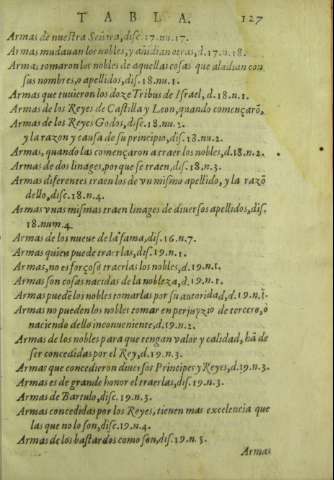 TABLA. 127
Armas de nuestra Señora, disc. 17. nu. 17.
Armas mudauan los nobles, y añidian otras, d. 17. n. 18.
Armas tomaron los nobles de aquellas cosas que aludian con
sus nombres, o apellidos, dis. 18. nu. 1.
Armas que tuuieron los doze Tribus de Israel, d. 18. n. 1.
Armas de los Reyes de Castilla y Leon, quando començarõ,
Armas de los Reyes Godos, disc. 18. nu. 2.
y la razon y causa de su principio, dis. 18. nu. 2.
Armas, quando las començaron a traer los nobles, d. 18. n. 2.
Armas de dos linages, porque se traen, dis. 18. n. 3.
Armas diferentes traen los de vn mismo apellido, y la razõ
dello, disc. 18. n. 4.
Armas vnas mismas traen linages de diuersos apellidos, dis.
18. num. 4.
Armas de los nueue de la fama, dis. 16. n. 7.
Armas quien puede traerlas, dis. 19. n. 1.
Armas, no es forçoso traerlas los nobles, d. 19. n. 1.
Armas son cosas nacidas de la nobleza, d. 19. n. 1.
Armas puedẽ los nobles tomarlas por su autoridad, d. 19. n. 1.
Armas no pueden los nobles tomar en perjuyzio de tercero, ò
naciendo dello inconueniente, d. 19. n. 2.
Armas de los nobles para que tengan valor y calidad, hã de
ser concedidas por el Rey, d. 19. n. 3.
Armas que concedieron diuersos Principes y Reyes, d. 19. n. 3.
Armas es de grande honor el traerlas, dis. 19. n. 3.
Armas de Bartulo, disc. 19. n. 3.
Armas concedidas por los Reyes, tienen mas excelencia que
las que no lo son, disc. 19. n. 4.
Armas de los bastardos como son, dis. 19. n. 5.
Armas